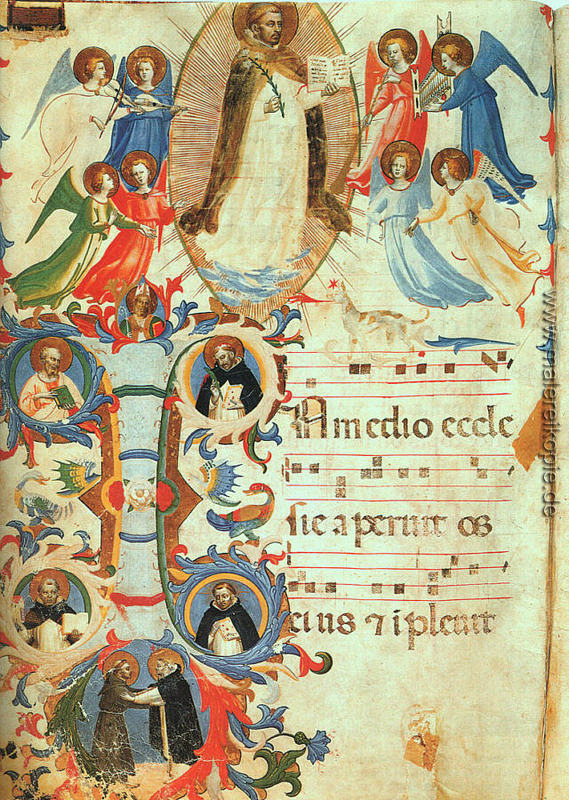 IN medio eccle
sie aperuit os
eius ⁊ ipleuit
www.malereikopie.de